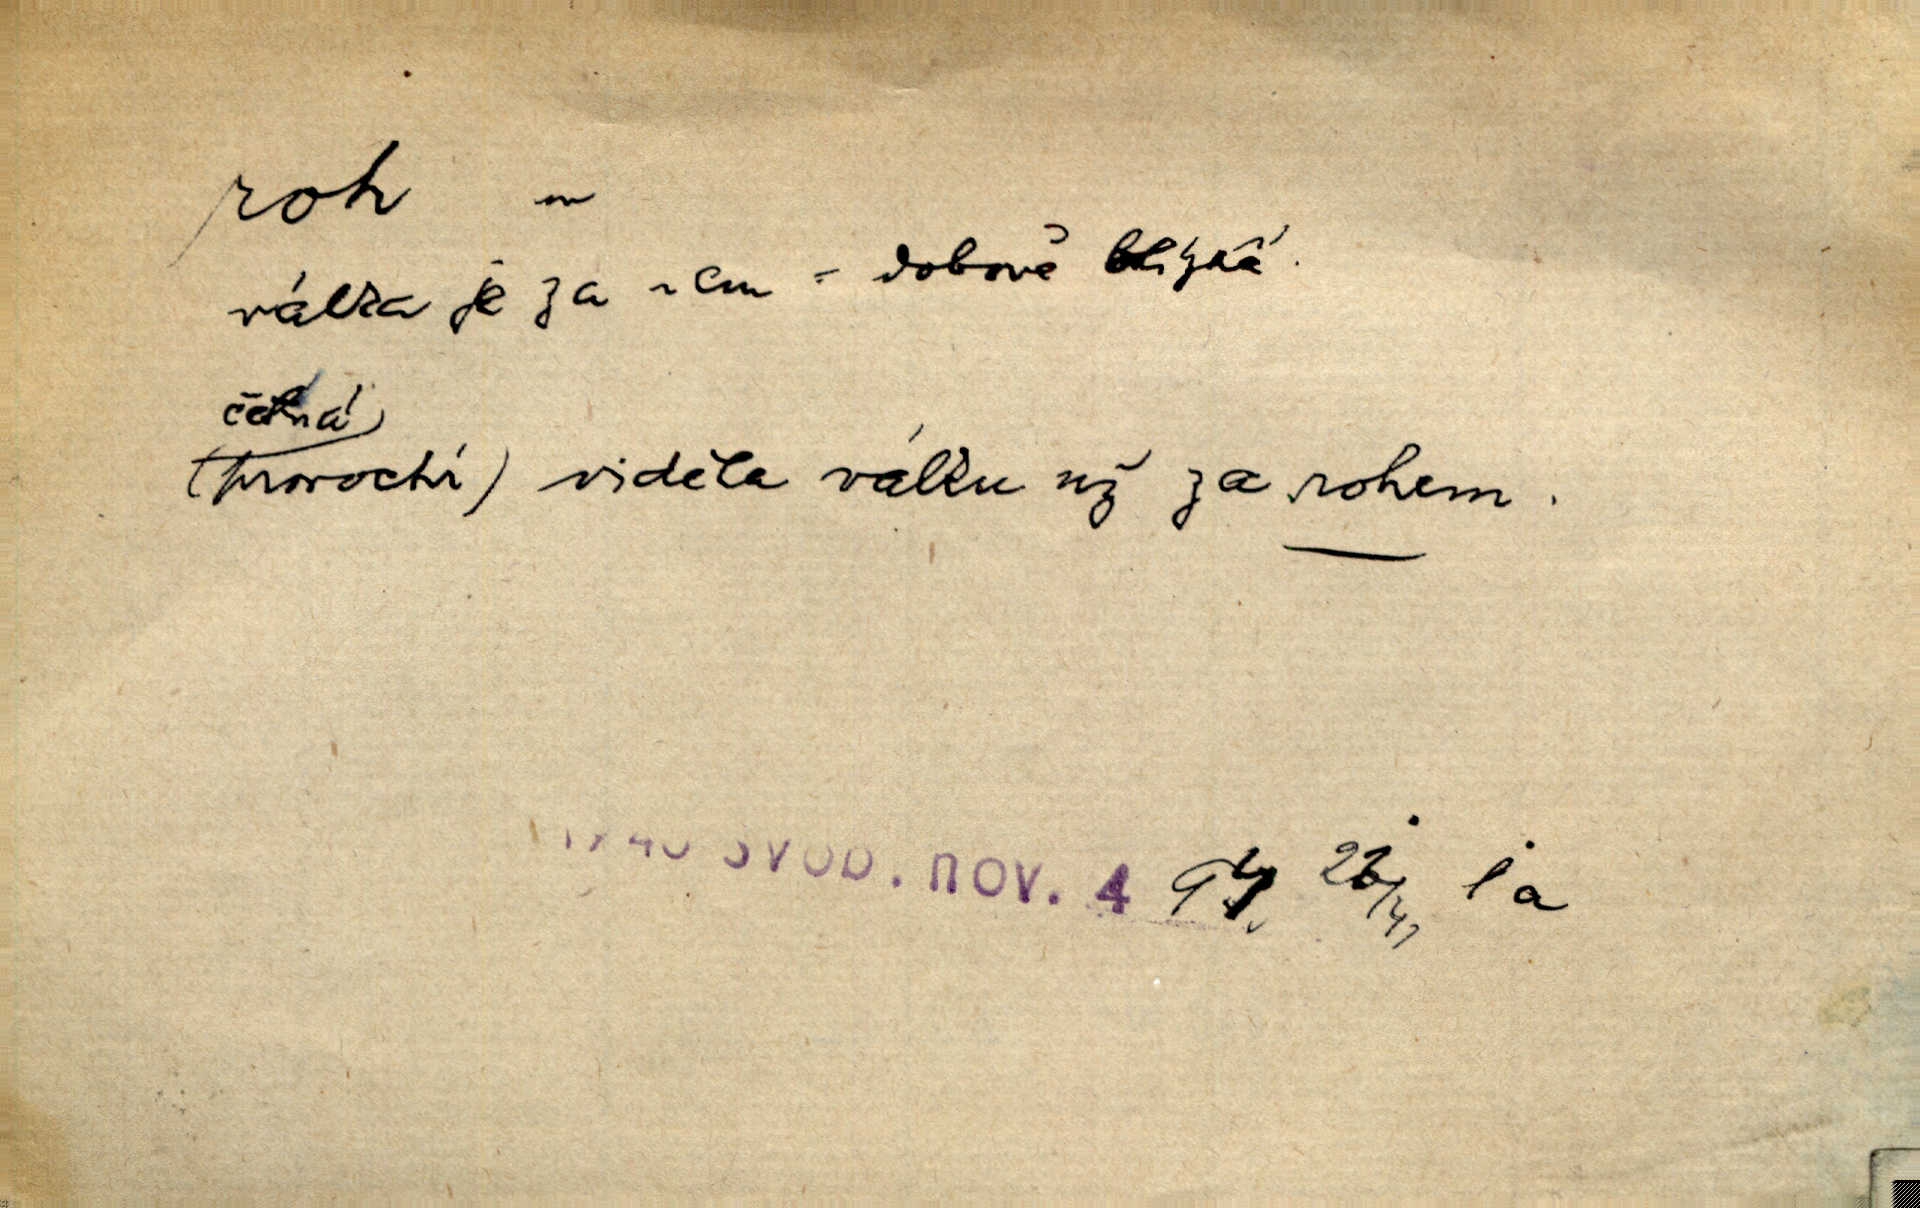 roh m
válka je za rem = dobově blízká.
četná
(proroctví) viděla válku už za rohem.
1946 SVOB. NOV. 4 la